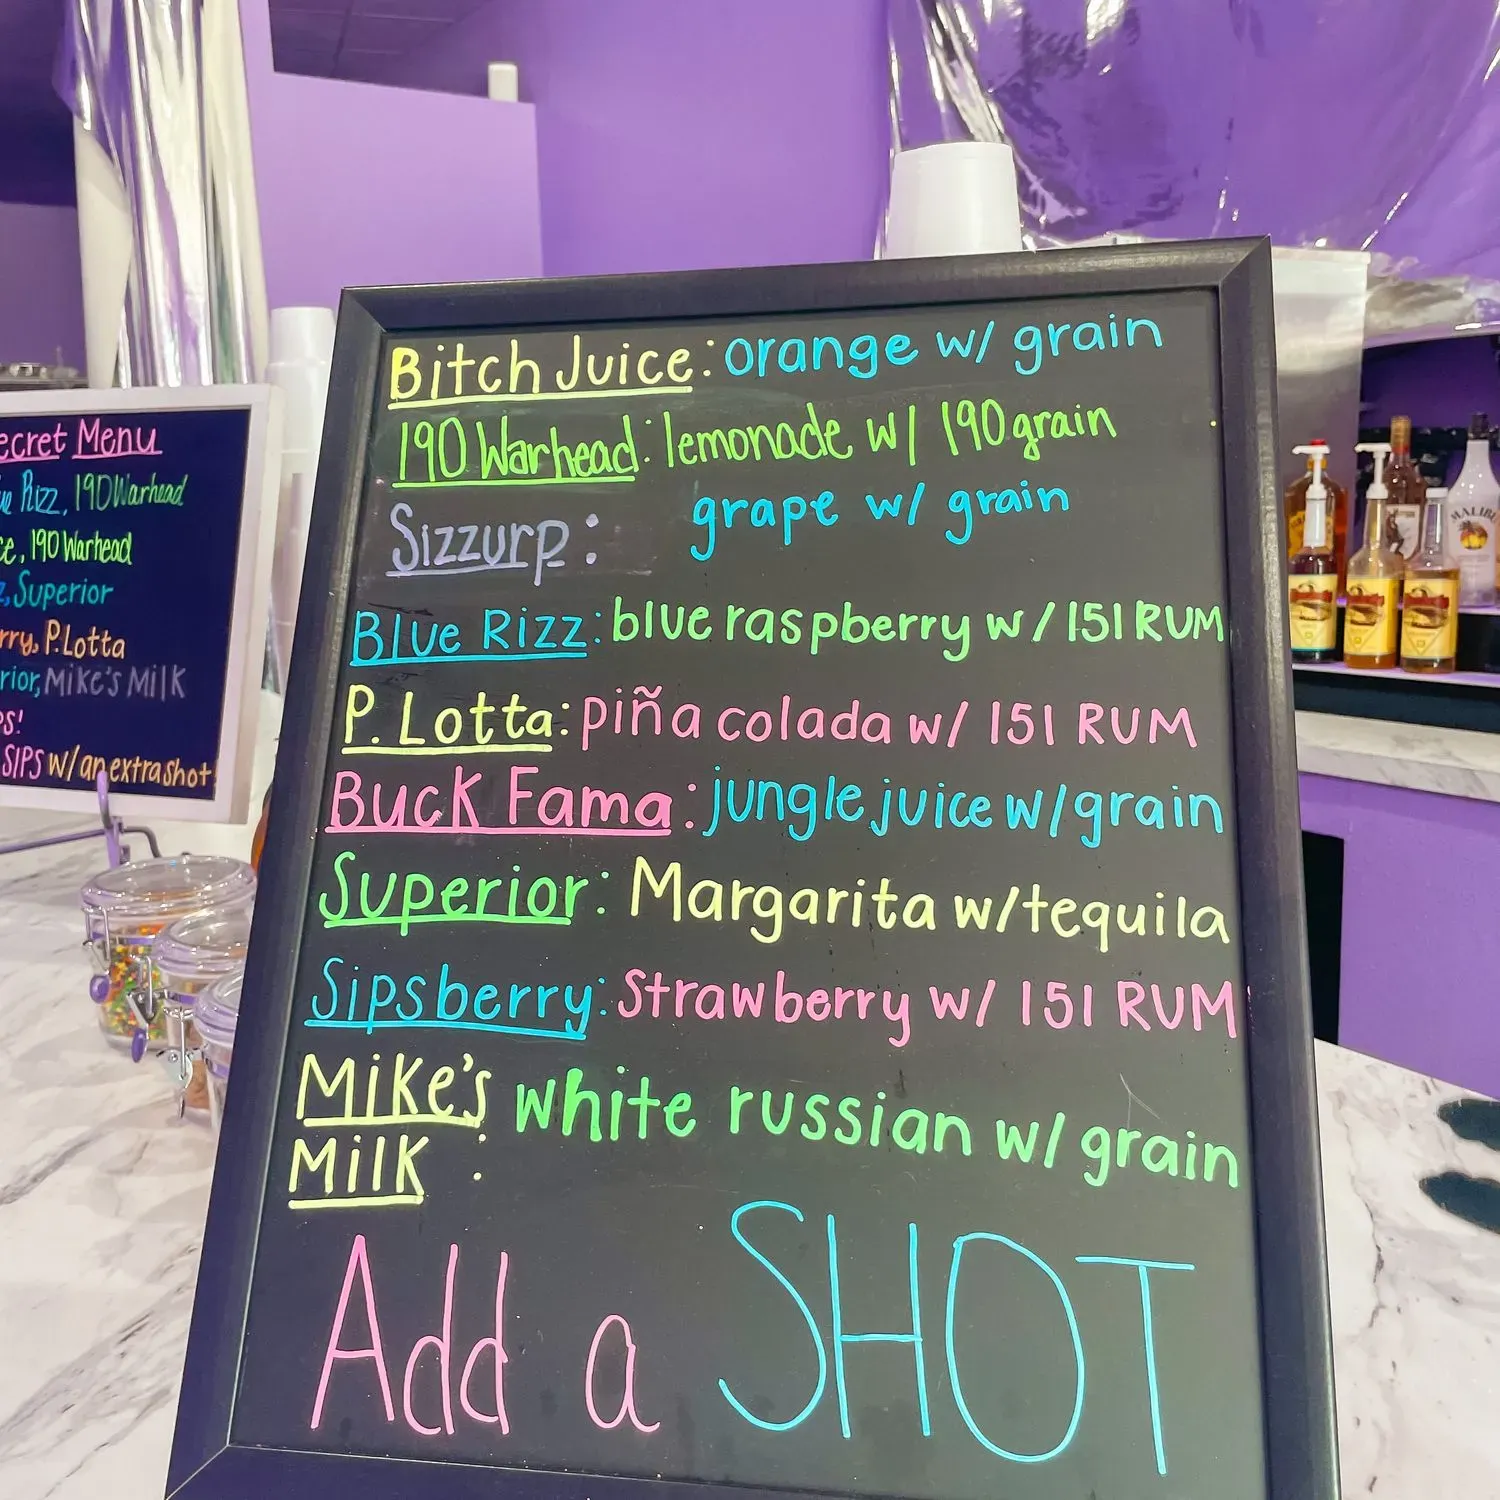 Bitch Juice: orange w/ grain
190 Warhead: lemonade w/ 190 grain
Sizzurp: grape w/ grain
Blue Rizz: blue raspberry w/ 151 RUM
P. Lotta: piña colada w/ 151 RUM
Buck Fama: jungle juice w/ grain
Superior: Margarita w/ tequila
Sipsberry: Strawberry w/ 151 RUM
Mike's white russian w/ grain
Milk :
Add a SHOT
ecret Menu
ue Rizz, 190 Warhead
ce, 190 Warhead
z, Superior
rry, P. Lotta
rior, Mike's Milk
ps!
SIPS w/ an extra shot
MALIBU